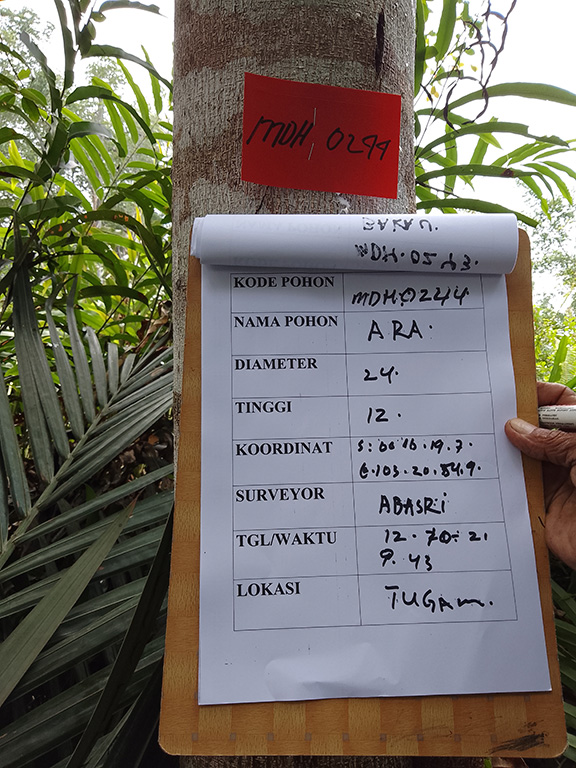 MDH 0244
BAKAU.
MDH.0543.
KODE POHON MDH.0244
NAMA POHON ARA.
DIAMETER 24.
TINGGI 12.
KOORDINAT S: 00.16.19.7.
E.103.20.54.9.
SURVEYOR ABASRi
TGL/WAKTU 12.10.21.
9.43
LOKASI TUGAM.